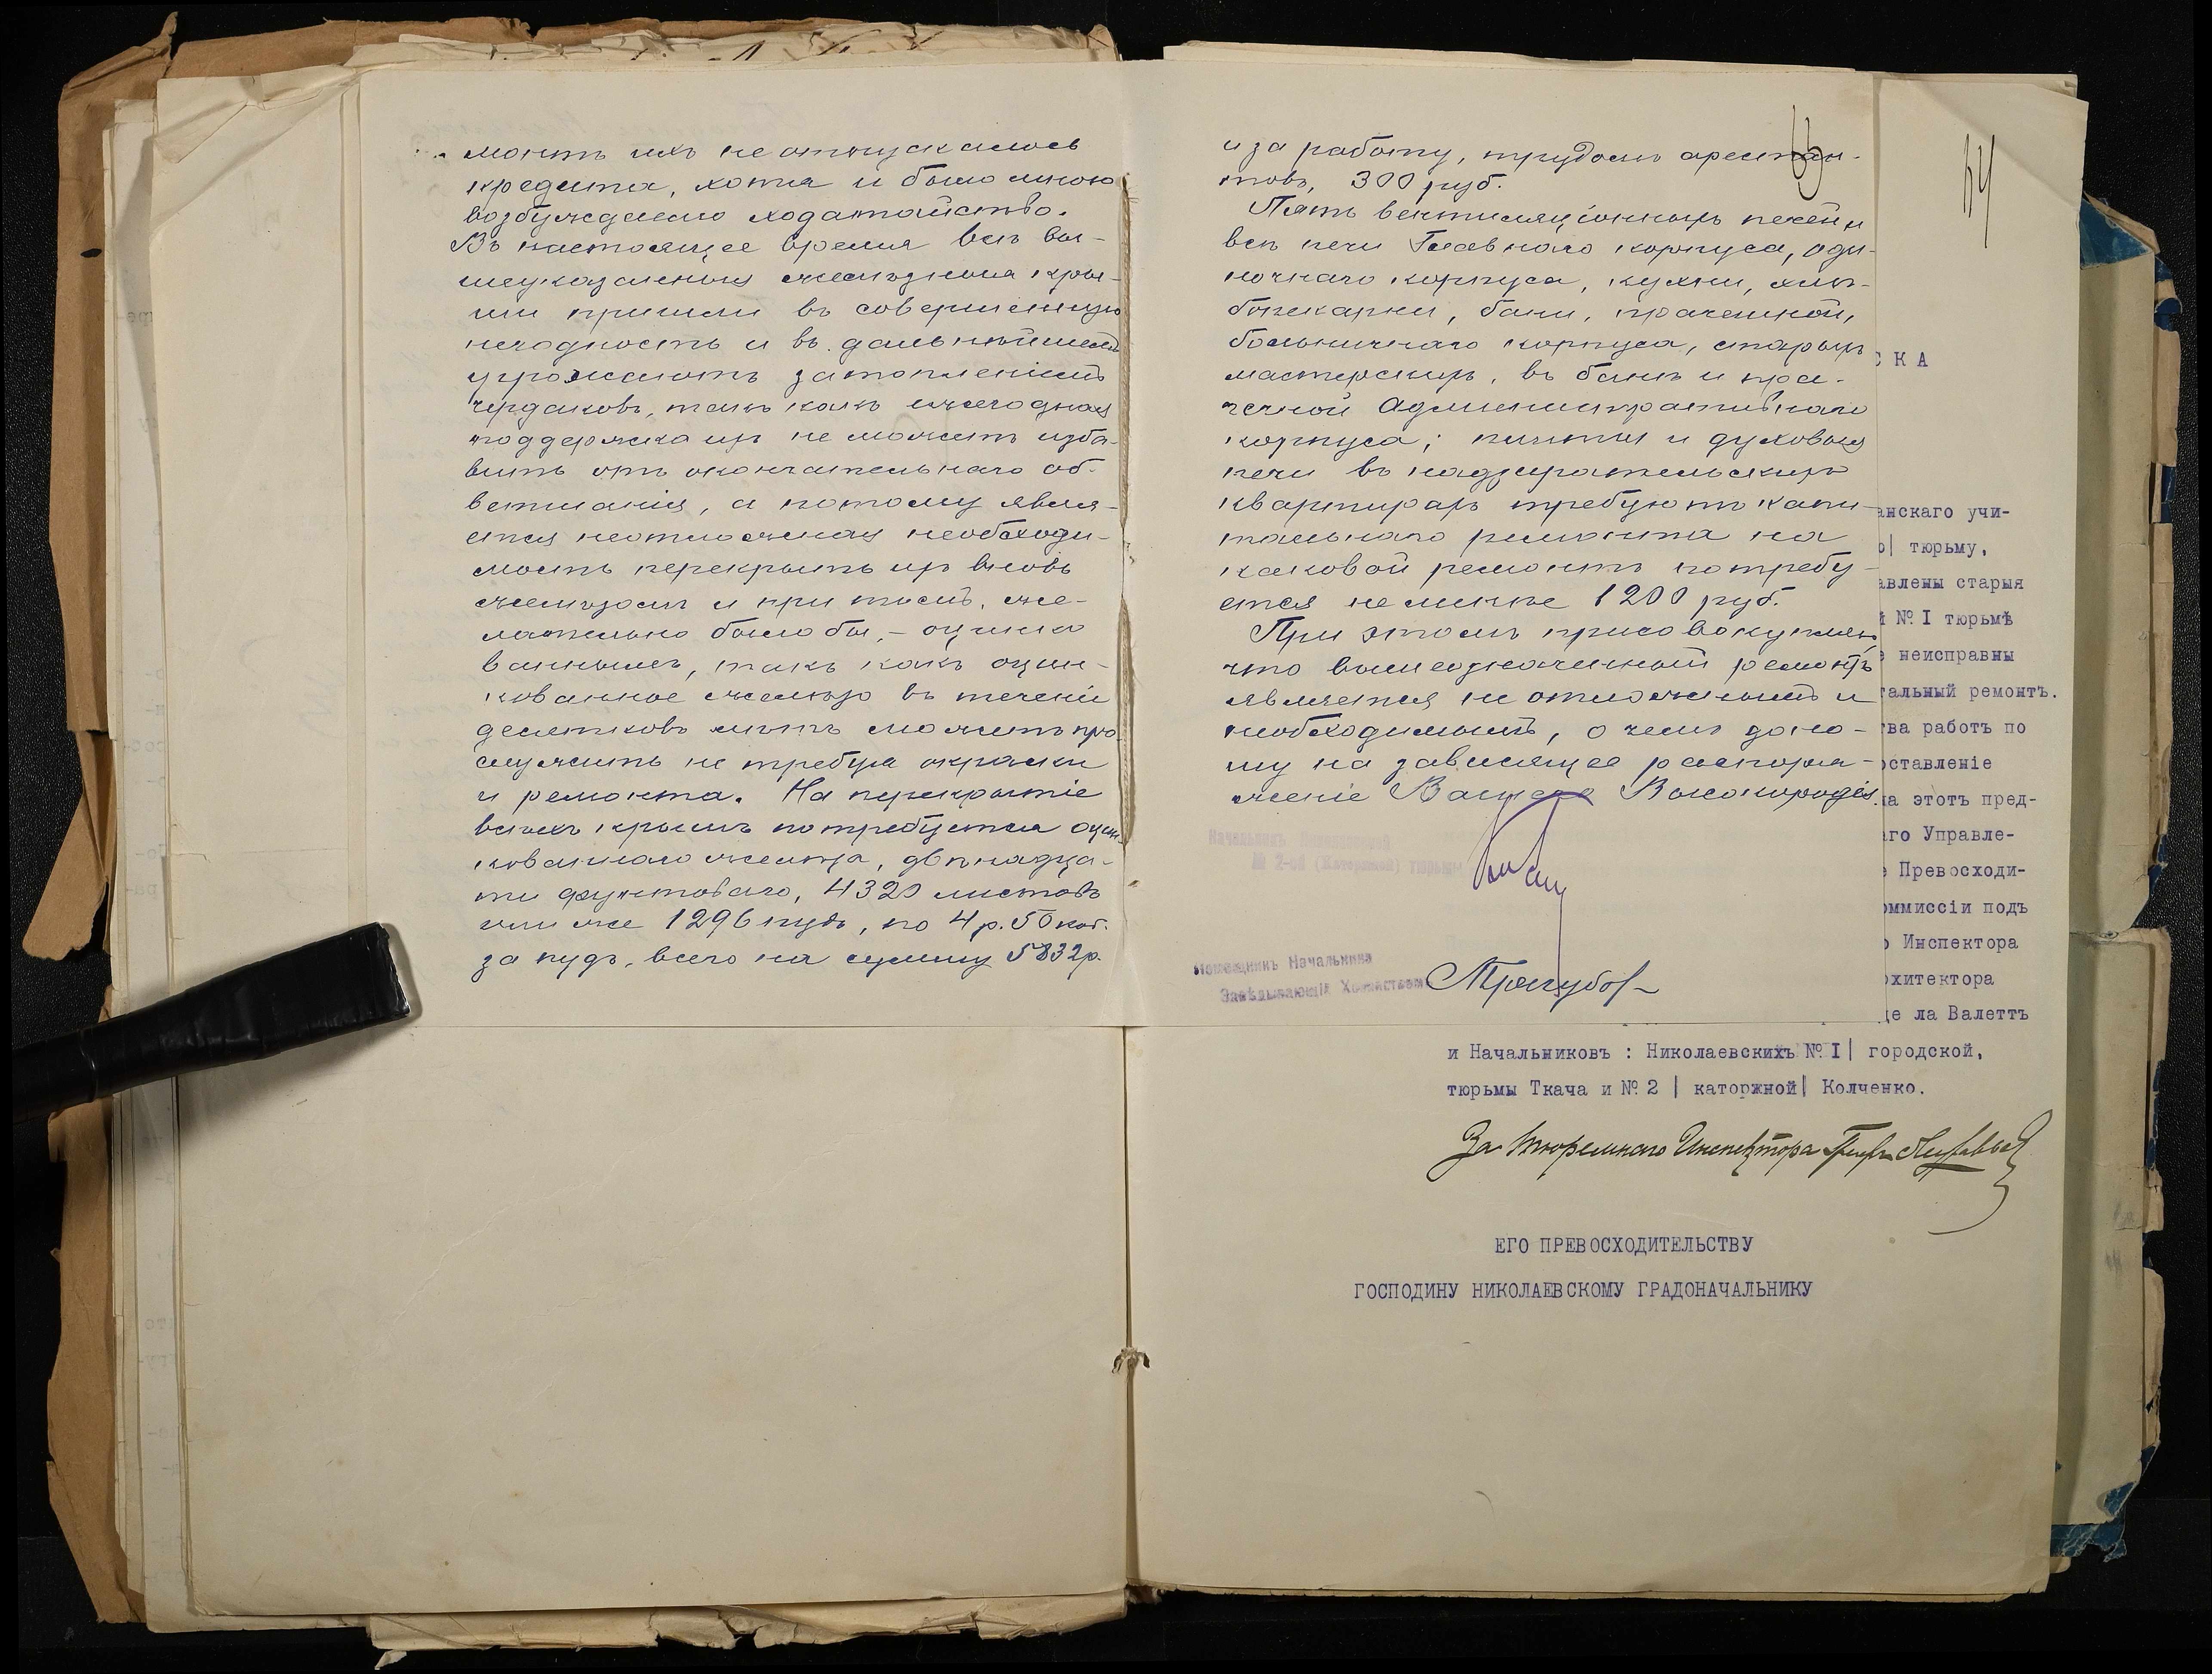 монтъ ихъ не отпускалось
кредита, хотя и было мною
возбуждено ходатайство.
Въ настоящее время всѣ вы-
шеуказанныя желѣзныя кры-
ши пришли въ совершенную
негодность и въ дальнѣйшемъ
угрожаютъ затопленіемъ
чердаковъ, такъ какъ ежегодная
поддержка ихъ не можетъ изба-
вить отъ окончательнаго об-
ветшанія, а потому явля-
ется неотложная необходи-
мость перекрыть ихъ вновь
желѣзомъ и при томъ, же-
лательно было бы, - оцинко
ваннымъ, такъ какъ оцин-
кованное желѣзо въ теченіи
десятковъ лѣтъ можетъ про-
служить не требуя окраски
и ремонта. На перекрытіе
всѣхъ крышъ потребуется оцин-
кованнаго желѣза, двѣнадца-
ти фунтоваго, 4320 листовъ
или же 1296 пудъ, по 4 р. 50 коп.
за пудъ, всего на сумму 5832 р.
63
и за работу, трудомъ арестан-
товъ, 300 руб.
Пять вентиляціонныхъ печей и
всѣ печи Главнаго корпуса, оди-
ночнаго корпуса, кухни, хлѣ-
бопекарни, бани, прачешной,
больничнаго корпуса, старыхъ
мастерскихъ, въ банѣ и пра-
чечной Административнаго
корпуса; плиты и духовыя
печи въ надзирательскихъ
квартирахъ требуютъ капи-
тальнаго ремонта на
каковой ремонтъ потребу-
ется не менѣе 1200 руб.
При этомъ присовокупляю,
что вышеозначенный ремонтъ
является неотложнымъ и
необходимымъ, о чемъ доно-
шу на зависящее распоря-
женіе Вашего Высокородія.
Начальникъ Николаевской
№ 2-ой (Каторжной) тюрьмы
Помощникъ Начальника
Завѣдывающій Хозяйствомъ
64
СКА
анскаго учи-
о| тюрьму,
авлены старыя
й № I тюрьмѣ
е неисправны
тальный ремонтъ.
тва работъ по
оставленіе
на этотъ пред-
аго Управле-
е Превосходи-
оммиссіи подъ
о Инспектора
рхитектора
де ла Валеттъ
и Начальниковъ : Николаевскихъ № I| городской,
тюрьмы Ткача и № 2 | каторжной| Колченко.
За Тюремнаго Инспектора
ЕГО ПРЕВОСХОДИТЕЛЬСТВУ
ГОСПОДИНУ НИКОЛАЕВСКОМУ ГРАДОНАЧАЛЬНИКУ